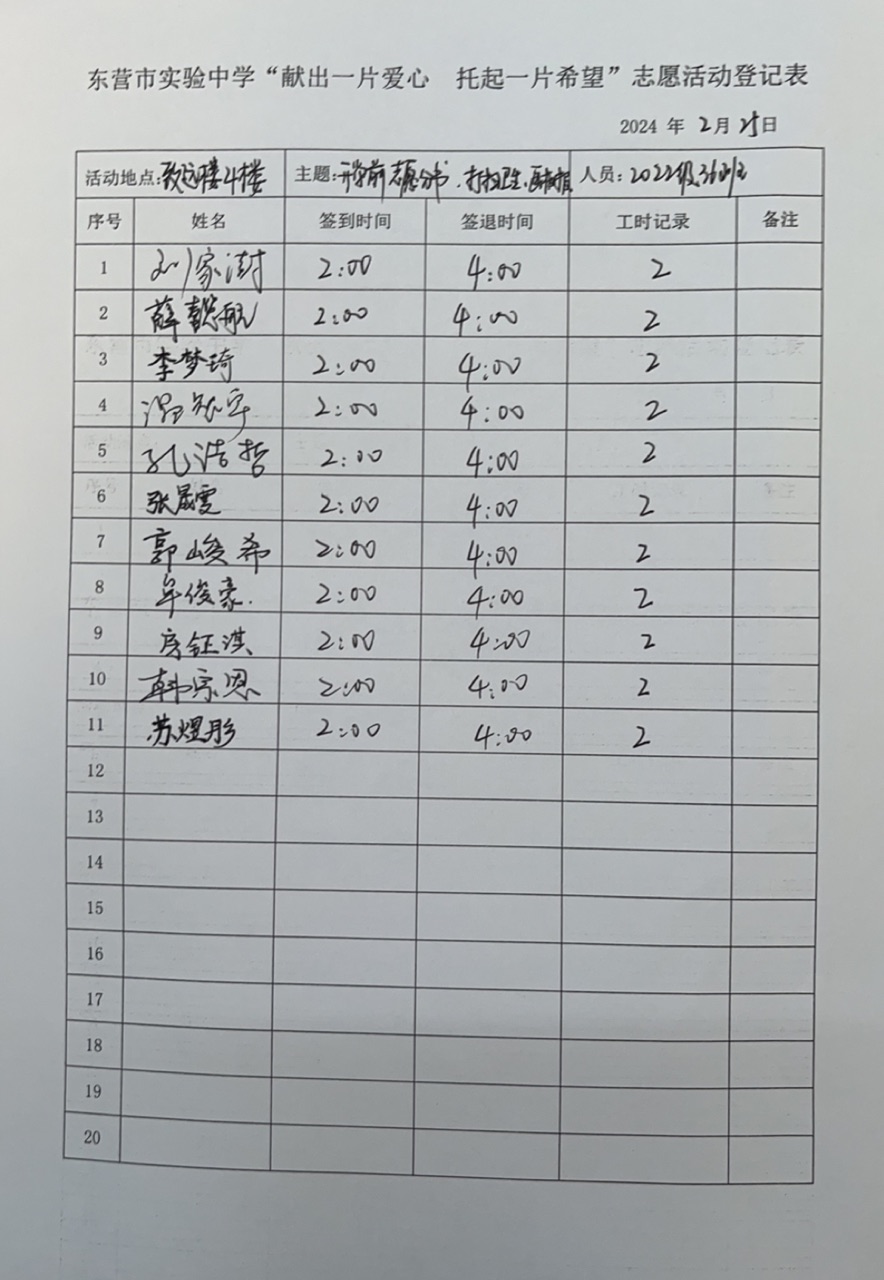 东营市实验中学“献出一片爱心 托起一片希望”志愿活动登记表
2024 年 2 月 25 日
活动地点:致远楼4楼 主题:开学前志愿分书、打扫卫生、 人员:2022级36班
序号 姓名 签到时间 签退时间 工时记录 备注
1 刘家澍 2:00 4:00 2
2 薛懿航 2:00 4:00 2
3 李梦琦 2:00 4:00 2
4 2:00 4:00 2
5 孔浩哲 2:00 4:00 2
6 张晟雯 2:00 4:00 2
7 郭峻希 2:00 4:00 2
8 牟俊豪. 2:00 4:00 2
9 房钰淇 2:00 4:00 2
10 韩宗恩 2:00 4:00 2
11 苏煜彤 2:00 4:00 2
12
13
14
15
16
17
18
19
20